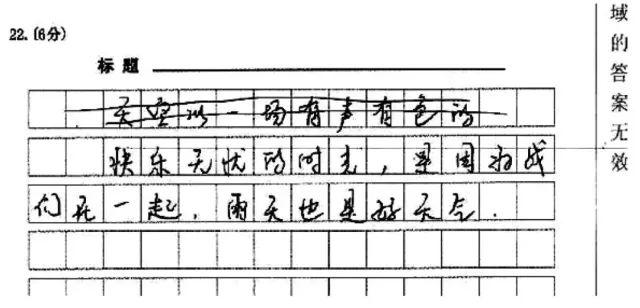 22.(6分)
标题
天空以一场有声有色的
快乐无忧的时光，是因为我
们在一起，雨天也是好天气．
域的答案无效